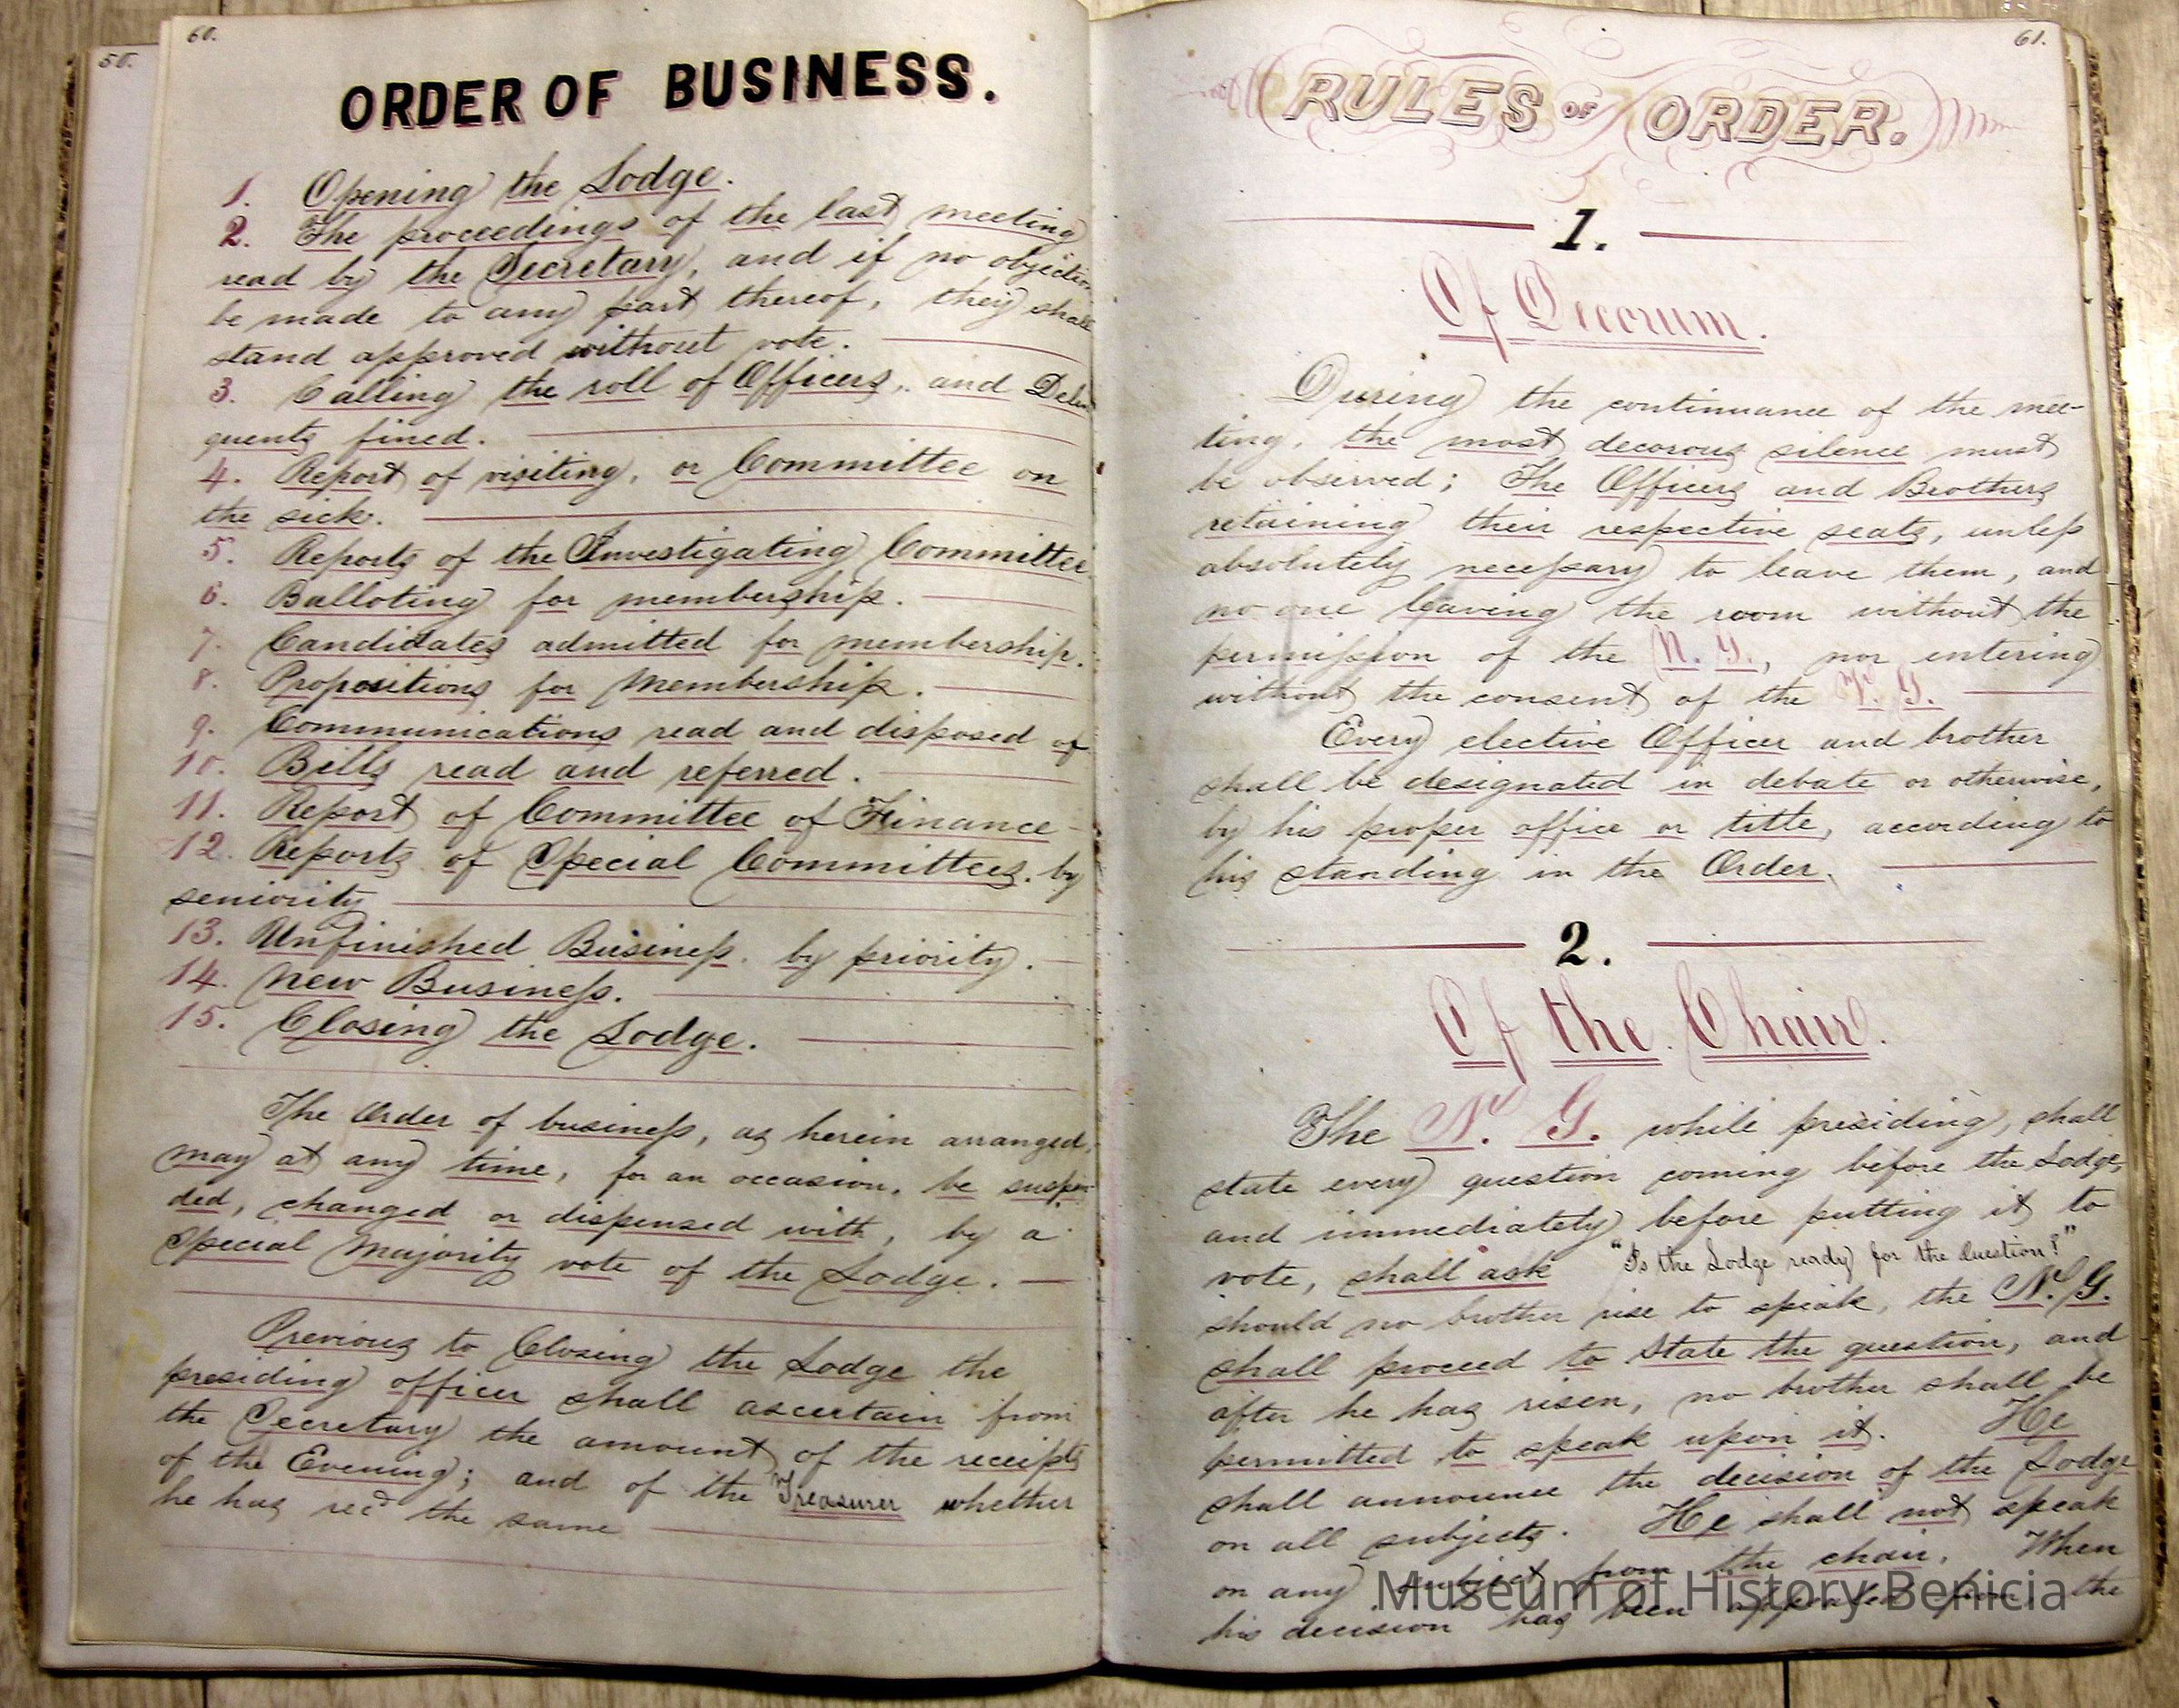 50.
60.
ORDER OF BUSINESS.
1. Opening the Lodge.
2. The proceedings of the last meeting
read by the Secretary, and if no objection
be made to any part thereof, they shall
stand approved without vote.
3. Calling the roll of Officers, and Delin
quents fined.
4. Report of visiting, or Committee on
the sick.
5. Reports of the Investigating Committee
6. Balloting for membership.
7. Candidates admitted for membership.
8. Propositions for Membership.
9. Communications read and disposed of
10. Bills read and referred.
11. Report of Committee of Finance
12. Reports of Special Committees. by
seniority
13. Unfinished Business. by priority.
14. New Business.
15. Closing the Lodge.
The Order of business, as herein arranged,
may at any time, for an occasion, be suspen-
ded, changed or dispensed with, by a
Special Majority vote of the Lodge.
Previous to Closing the Lodge the
presiding officer shall ascertain from
the Secretary the amount of the receipts
of the Evening; and of the Treasurer whether
he has rec'd the same
61.
RULES OF ORDER.
1.
Of Decorum.
During the continuance of the mee-
ting, the most decorous silence must
be observed; The Officers and Brothers
retaining their respective seats, unless
absolutely necessary to leave them, and
no one leaving the room without the
permission of the N. G., nor entering
without the consent of the V. G.
Every elective Officer and brother
shall be designated in debate or otherwise,
by his proper office or title, according to
his standing in the Order.
2.
Of the Chair.
The N. G. while presiding, shall
state every question coming before the Lodge,
and immediately before putting it to
vote, shall ask "Is the Lodge ready for the Question?"
should no brother rise to speak, the N. G.
shall proceed to State the question, and
after he has risen, no brother shall be
permitted to speak upon it. He
shall announce the decision of the Lodge
on all subjects. He shall not speak
on any subject from the chair. When
his decision has been appealed from the
Museum of History Benicia